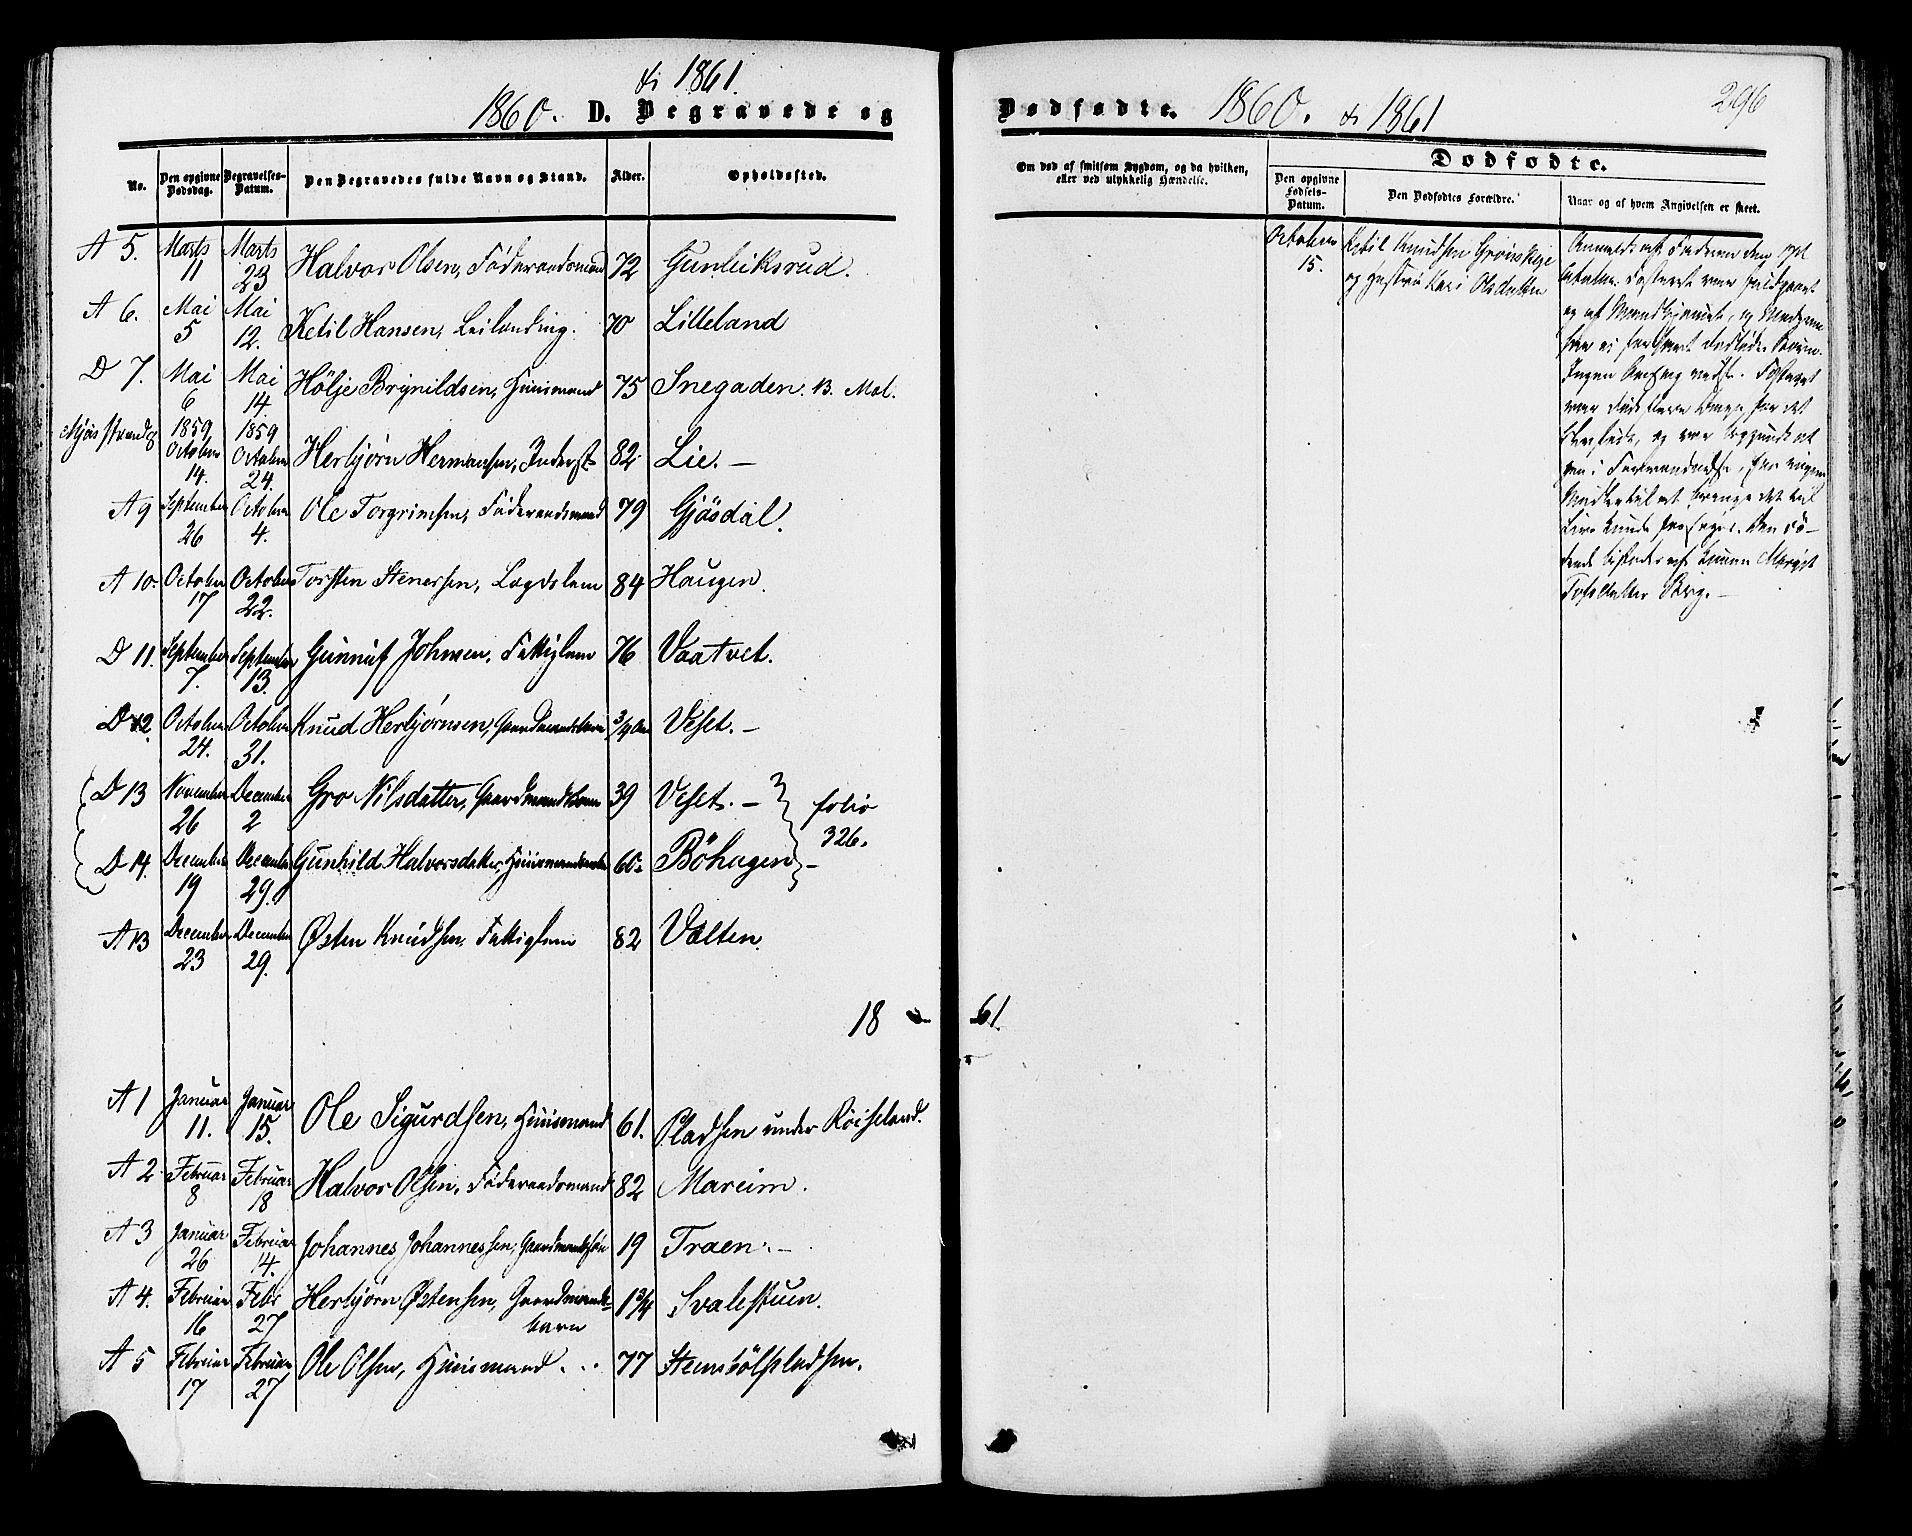 & 1861.
1860. D. Begravede og
No. Den opgivne Dødsdag. Begravelses-Datum. Den Begravedes fulde Navn og Stand. Alder. Opholdssted.
A 5. Marts 11 Marts 23 Halvor Olsen, Föderaadsmand 72 Gunleiksrud.
A 6. Mai 5 Mai 12. Ketil Hansen, Leilænding. 70 Lilleland
D 7. Mai 6 Mai 14. Hölje Brynildsen, Huusmand 75 Snegaden. B. Mal.
Mjösstrand 8 1859 October 14. 1859 October 24. Herbjørn Hermansen, Inderst 82 Lie. –
A 9 September 26 October 4. Ole Torgrimsen, Föderaadsmand 79 Gjösdal.
A 10. October 17 October 22. Torsten Stenersen, Lægdslem 84 Haugen.
D 11. September 7. September 13. Gunnuf Johnsen, Fattiglem 76 Vaatvet.
D 12. October 24. October 31. Knud Herbjørnsen, Gaardmandsbarn 3/4 Aar Veset. –
D 13 November 26 December 2 Gro Nilsdatter, Gaardmandskone 39 Veset. – folio
D 14. December 19 December 29. Gunhild Halvorsdatter, Huusmandsenke 60. Böhagen – 326.
A 13 December 23 December 29. Østen Knudsen, Fattiglem 82 Valten.
18 61.
A 1 Januar 11. Januar 15. Ole Sigurdsen, Huusmand 61. Pladsen under Röiseland.
A 2 Februar 8 Februar 18 Halvor Olsen, Föderaadsmand 82 Mareim.
A 3 Januar 26 Februar 14. Johannes Johannessen, Gaardmandssön 19 Traen. –
A 4. Februar 16 Febr 27 Herbjørn Østensen, Gaardmands-
barn 1 3/4 Svalestuen.
A 5 Februar 17 Februar 27 Ole Olsen, Huusmand . . . 77 Stemsbölpladsen.
Dødfødte. 1860. & 1861
296
Om død af smitsom Sygdom, og da hvilken, eller ved ulykkelig Hændelse.
Dødfødte.
Den opgivne Fødsels-Datum. Den Dødfødtes Forældre. Naar og af hvem Angivelsen er skeet.
October 15. Ketil Knudsen Grovskeje
og Hustru Kari Olsdatter
Anmeldt af Faderen den 17de
October. Fosteret var fuldgaaet
og af Mandkjønnet, og Moderen
har ei før havt dødfødte Børn.